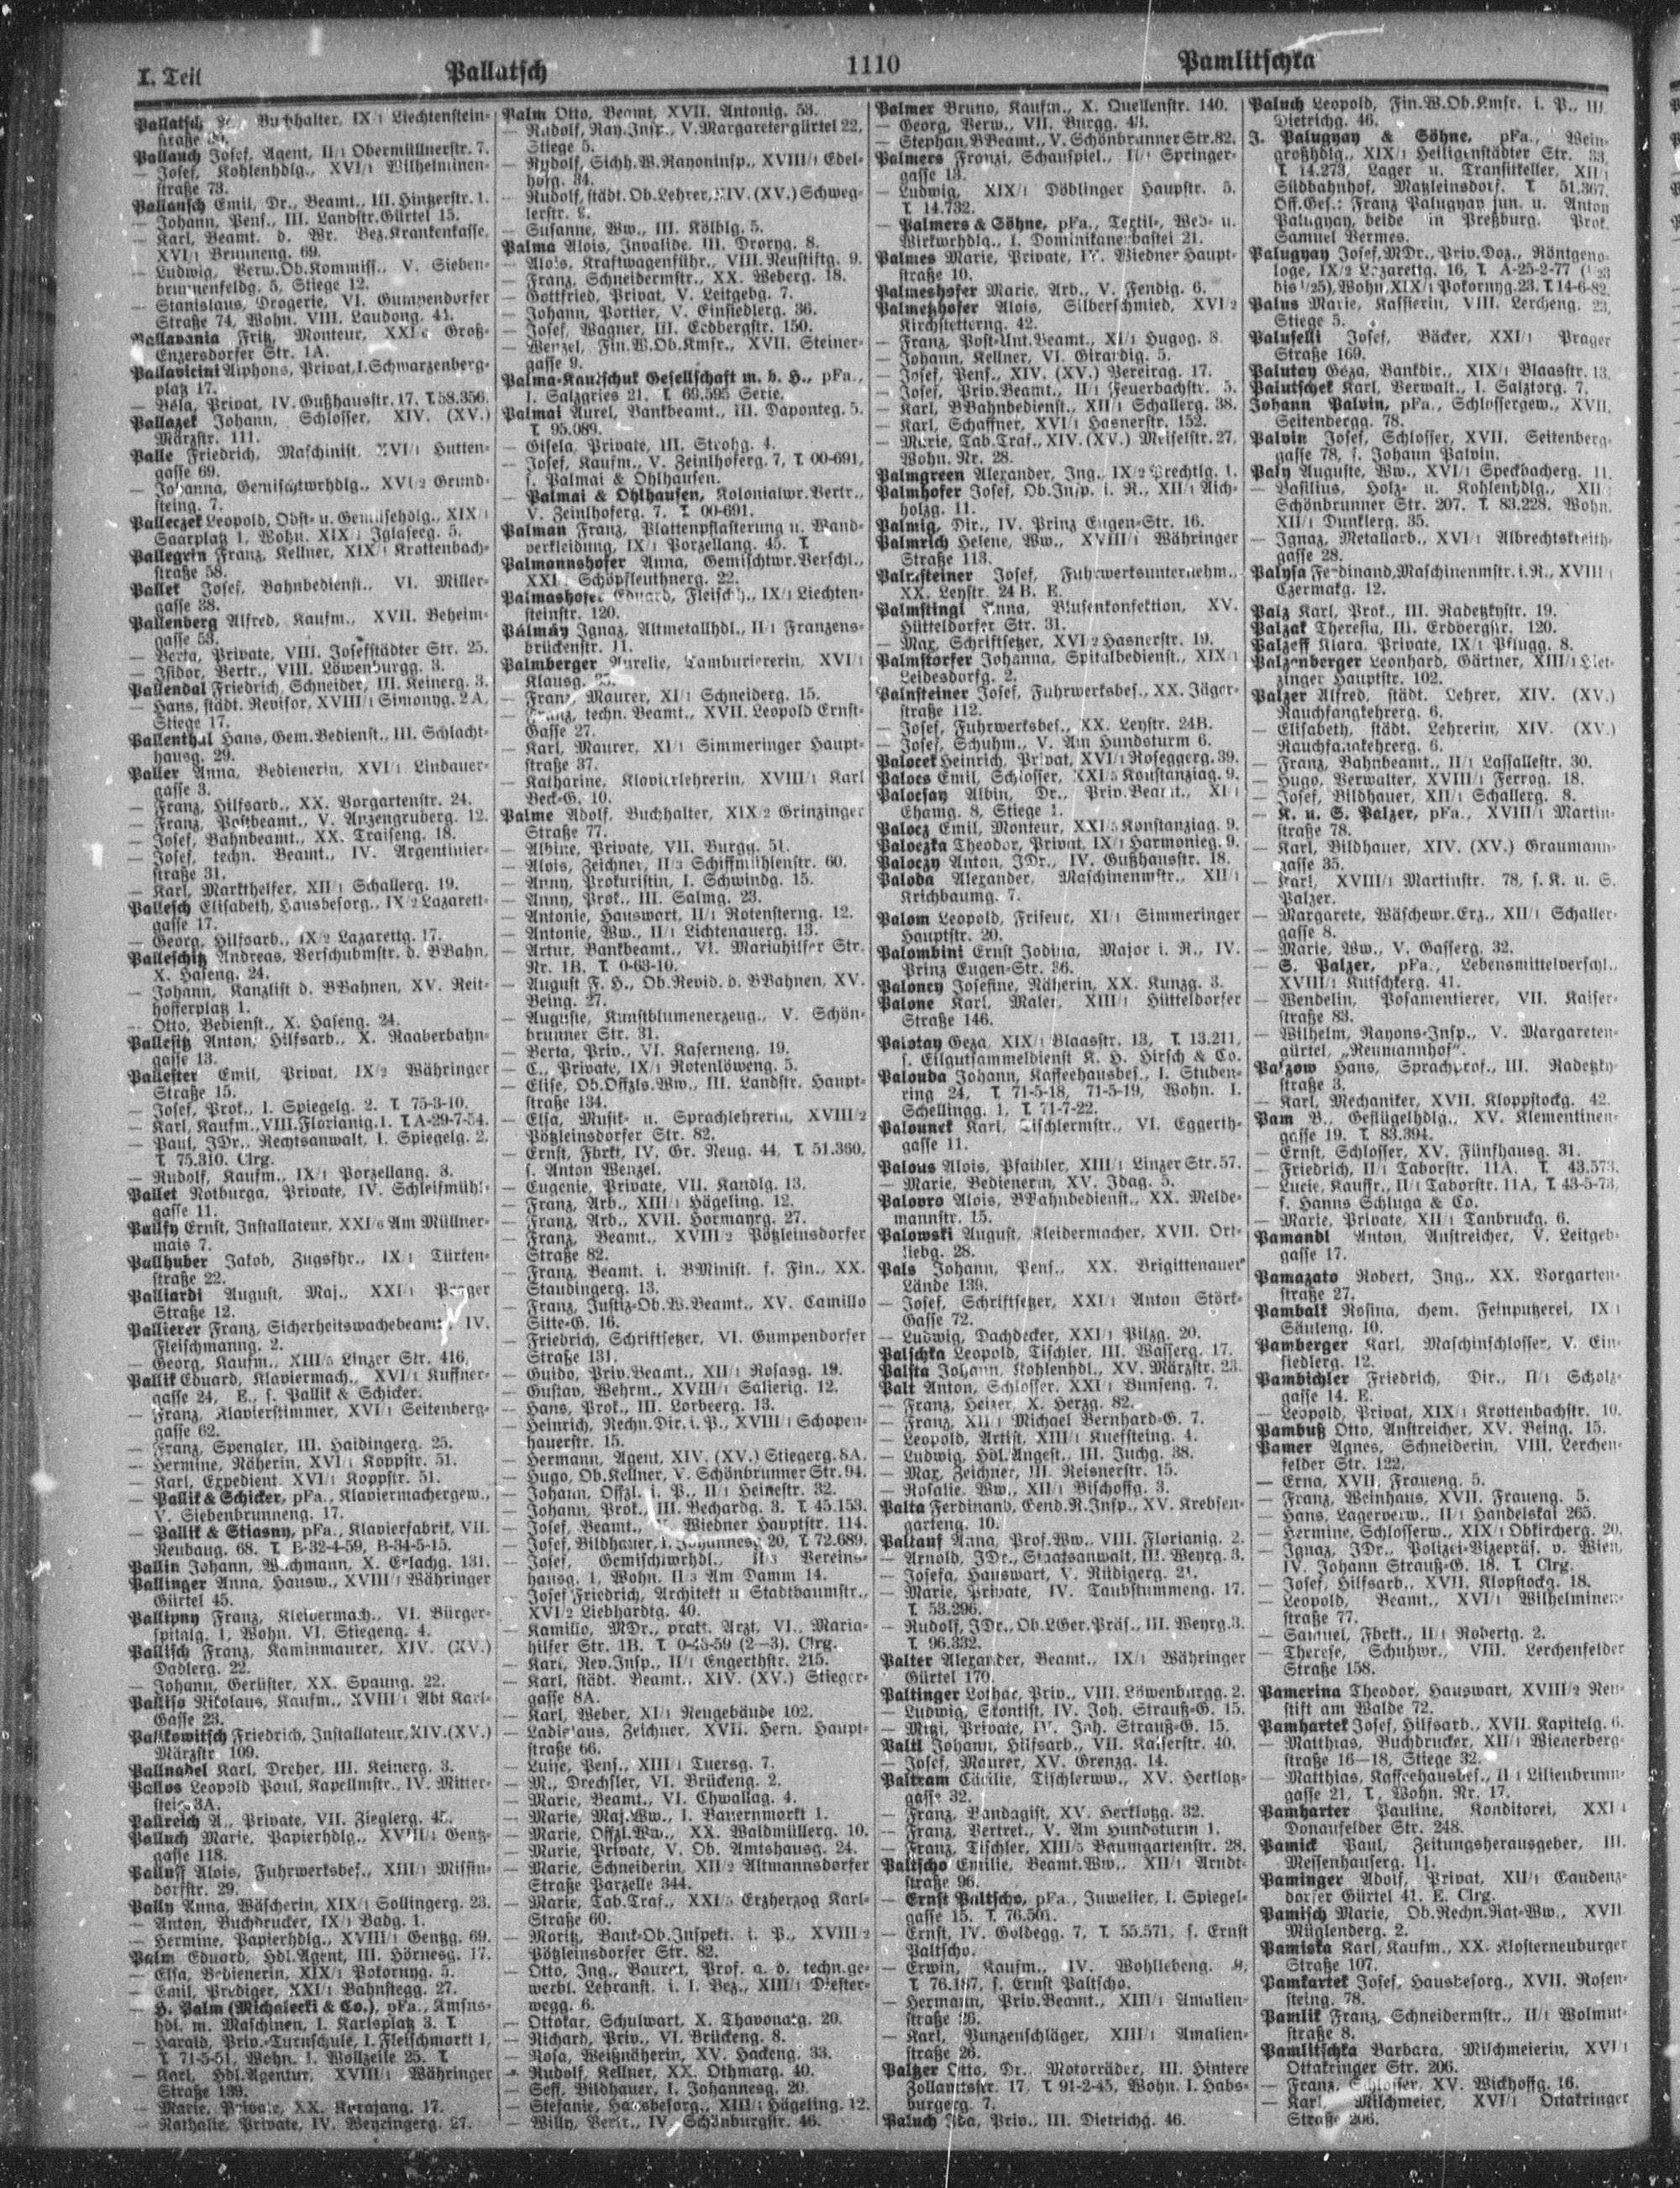 I. Teil
Pallatsch
1110
Pamlitschka
Pallatsch Buchhalter, IX/1 Liechtenstein-
straße
Pallauch Josef, Agent, II/1 Obermüllnerstr. 7.
— Josef, Kohlenhdlg., XVI/1 Wilhelminen-
straße 73.
Pallausch Emil, Dr., Beamt., III. Hintzerstr. 1.
— Johann, Pens., III. Landstr.Gürtel 15.
— Karl, Beamt. d. Wr. Bez.Krankenkasse,
XVI/1 Brunneng. 69.
— Ludwig, Verw.Ob.Kommiss., V. Sieben-
brunnenfeldg. 5, Stiege 12.
— Stanislaus, Drogerie, VI. Gumpendorfer
Straße 74, Wohn. VIII. Laudong. 41.
Pallavania Fritz, Monteur, XXI/6 Groß-
Enzersdorfer Str. 1A.
Pallavicini Alphons, Privat, I. Schwarzenberg-
platz 17.
— Béla, Privat, IV. Gußhausstr. 17. T. 58.356.
Pallazek Johann, Schlosser, XIV. (XV.)
Märzstr. 111.
Palle Friedrich, Maschinist, XVI/1 Hutten-
gasse 69.
— Johanna, Gemischtwrhdlg., XVI/2 Grund-
steing. 7.
Palleczek Leopold, Obst- u. Gemüsehdlg., XIX/1
Saarplatz 1, Wohn. XIX/1 Iglaserg. 5.
Pallegrin Franz, Kellner, XIX/1 Krottenbach-
straße 58.
Pallek Josef, Bahnbedienst., VI. Miller-
gasse 38.
Pallenberg Alfred, Kaufm., XVII. Beheim-
gasse 53.
— Berta, Private, VIII. Josefstädter Str. 25.
— Isidor, Vertr., VIII. Löwenburgg. 3.
Pallendal Friedrich, Schneider, III. Keinerg. 3.
— Hans, städt. Revisor, XVIII/1 Simonyg. 2A,
Stiege 17.
Pallenthal Hans, Gem.Bedienst., III. Schlacht-
hausg. 29.
Paller Anna, Bedienerin, XVI/1 Lindauer-
gasse 3.
— Franz, Hilfsarb., XX. Vorgartenstr. 24.
— Franz, Postbeamt., V. Anzengruberg. 12.
— Josef, Bahnbeamt., XX. Traiseng. 18.
— Josef, techn. Beamt., IV. Argentinier-
straße 31.
— Karl, Markthelfer, XII/1 Schallerg. 19.
Pallesch Elisabeth, Hausbesorg., IX/2 Lazarett-
gasse 17.
— Georg, Hilfsarb., IX/2 Lazarettg. 17.
Palleschitz Andreas, Verschubmstr. d. BBahn,
X. Haseng. 24.
— Johann, Kanzlist d. BBahnen, XV. Reit-
hofferplatz 1.
— Otto, Bedienst., X. Haseng. 24.
Pallesitz Anton, Hilfsarb., X. Raaberbahn-
gasse 13.
Pallester Emil, Privat, IX/2 Währinger
Straße 15.
— Josef, Prok., I. Spiegelg. 2. T. 75-3-10.
— Karl, Kaufm., VIII. Florianig. 1. T. A-29-7-54.
— Paul, JDr., Rechtsanwalt, I. Spiegelg. 2.
T. 75.310. Clrg.
— Rudolf, Kaufm., IX/1 Porzellang. 3.
Pallet Notburga, Private, IV. Schleifmühl-
gasse 11.
Pallfy Ernst, Installateur, XXI/6 Am Müllner-
mais 7.
Pallhuber Jakob, Zugsfhr., IX/1 Türken-
straße 22.
Palliardi August, Maj., XXI/1 Prager
Straße 12.
Pallierer Franz, Sicherheitswachebeamt., IV.
Fleischmanng. 2.
— Georg, Kaufm., XIII/5 Linzer Str. 416.
Pallik Eduard, Klaviermach., XVI/1 Kuffner-
gasse 24, E., s. Pallik & Schicker.
— Franz, Klavierstimmer, XVI/1 Seitenberg-
gasse 62.
— Franz, Spengler, III. Haidingerg. 25.
— Hermine, Näherin, XVI/1 Koppstr. 51.
— Karl, Expedient, XVI/1 Koppstr. 51.
— Pallik & Schicker, pFa., Klaviermachergew.,
V. Siebenbrunneng. 17.
— Pallik & Stiasny, pFa., Klavierfabrik, VII.
Neubaug. 68. T. B-32-4-59, B-34-5-15.
Pallin Johann, Wachmann, X. Erlachg. 131.
Pallinger Anna, Hausw., XVIII/1 Währinger
Gürtel 45.
Pallipny Franz, Kleidermach., VI. Bürger-
spitalg. 1, Wohn. VI. Stiegeng. 4.
Pallisch Franz, Kaminmaurer, XIV. (XV.)
Dadlerg. 22.
— Johann, Gerüster, XX. Spaung. 22.
Palliso Nikolaus, Kaufm., XVIII/1 Abt Karl-
Gasse 23.
Pallkowitsch Friedrich, Installateur, XIV. (XV.)
Märzstr. 109.
Pallnadel Karl, Dreher, III. Keinerg. 3.
Pallos Leopold Paul, Kapellmstr., IV. Mitter-
steig 3A.
Pallreich A., Private, VII. Zieglerg. 45.
Palluch Marie, Papierhdlg., XVIII/1 Gentz-
gasse 118.
Palluff Alois, Fuhrwerksbes., XIII/1 Missin-
dorfstr. 29.
Pally Anna, Wäscherin, XIX/1 Sollingerg. 23.
— Anton, Buchdrucker, IX/1 Badg. 1.
— Hermine, Papierhdlg., XVIII/1 Gentzg. 69.
Palm Eduard, Hdl.Agent, III. Hörnesg. 17.
— Elsa, Bedienerin, XIX/1 Pokornyg. 5.
— Emil, Prediger, XXI/1 Bahnstegg. 27.
— H. Palm (Michalecki & Co.), pFa., Kmsns-
hdl. m. Maschinen, I. Karlsplatz 3. T.
— Harald, Priv.-Turnschule, I. Fleischmarkt 1,
T. 71-5-51, Wohn. I. Wollzeile 25. T.
— Karl, Hdl.Agentur, XVIII/1 Währinger
Straße 139.
— Marie, Private, XX. Karajang. 17.
— Nathalie, Private, IV. Weyringerg. 27.
Palm Otto, Beamt, XVII. Antonig. 53.
— Rudolf, Ray.Insp., V. Margaretengürtel 22,
Stiege 5.
— Rudolf, Sichh.W.Rayoninsp., XVIII/1 Edel-
hofg. 34.
— Rudolf, städt. Ob.Lehrer, XIV. (XV.) Schweg-
lerstr.
— Susanne, Ww., III. Kölblg. 5.
Palma Alois, Invalide, III. Droryg. 8.
— Alois, Kraftwagenführ., VIII. Neustiftg. 9.
— Franz, Schneidermstr., XX. Weberg. 18.
— Gottfried, Privat, V. Leitgebg. 7.
— Johann, Portier, V. Einsiedlerg. 36.
— Josef, Wagner, III. Erdbergstr. 150.
— Wenzel, Fin.W.Ob.Kmsr., XVII. Steiner-
gasse 9.
Palma-Kautschuk Gesellschaft m. b. H., pFa.,
I. Salzgries 21. T. 69.595 Serie.
Palmai Aurel, Bankbeamt., III. Daponteg. 5.
T. 95.089.
— Gisela, Private, III. Strohg. 4.
— Josef, Kaufm., V. Zeinlhoferg. 7, T. 00-691,
s. Palmai & Ohlhausen.
— Palmai & Ohlhausen, Kolonialwr.Vertr.,
V. Zeinlhoferg. 7. T. 00-691.
Palman Franz, Plattenpflasterung u. Wand-
verkleidung, IX/1 Porzellang. 45. T.
Palmannshofer Anna, Gemischtwr.Verschl.,
XXI Schöpfleuthnerg. 22.
Palmashofer Eduard, Fleischh., IX/1 Liechten-
steinstr. 120.
Pálmáy Ignaz, Altmetallhdl., II/1 Franzens-
brückenstr. 11.
Palmberger Aurelie, Tamburiererin, XVI/1
Klausg.
— Franz, Maurer, XI/1 Schneiderg. 15.
— Franz, techn. Beamt., XVII. Leopold Ernst-
Gasse 27.
— Karl, Maurer, XI/1 Simmeringer Haupt-
straße 37.
— Katharine, Klavierlehrerin, XVIII/1 Karl
Beck-G. 10.
Palme Adolf, Buchhalter, XIX/2 Grinzinger
Straße 77.
— Albine, Private, VII. Burgg. 51.
— Alois, Zeichner, II/3 Schiffmühlenstr. 60.
— Anny, Prokuristin, I. Schwindg. 15.
— Anny, Prok., III. Salmg. 23.
— Antonie, Hauswart, II/1 Rotensterng. 12.
— Antonie, Ww., II/1 Lichtenauerg. 13.
— Artur, Bankbeamt., VI. Mariahilfer Str.
Nr. 1B. T. 0-63-10.
— August F. H., Ob.Revid. d. BBahnen, XV.
Being. 27.
— Auguste, Kunstblumenerzeug., V. Schön-
brunner Str. 31.
— Berta, Priv., VI. Kaserneng. 19.
— C., Private, IX/1 Rotenlöweng. 5.
— Elise, Ob.Offzls.Ww., III. Landstr. Haupt-
straße 134.
— Elsa, Musik- u. Sprachlehrerin, XVIII/2
Pötzleinsdorfer Str. 82.
— Ernst, Fbrkt, IV. Gr. Neug. 44, T. 51.360,
s. Anton Wenzel.
— Eugenie, Private, VII. Kandlg. 13.
— Franz, Arb., XIII/1 Hägeling. 12.
— Franz, Arb., XVII. Hormayrg. 27.
— Franz, Beamt., XVIII/2 Pötzleinsdorfer
Straße 82.
— Franz, Beamt. i. BMinist. f. Fin., XX.
Staudingerg. 13.
— Franz, Justiz-Ob.W.Beamt., XV. Camillo
Sitte-G. 16.
— Friedrich, Schriftsetzer, VI. Gumpendorfer
Straße 131.
— Guido, Priv.Beamt., XII/1 Rosasg. 19.
— Gustav, Wehrm., XVIII/1 Salierig. 12.
— Hans, Prok., III. Lorbeerg. 13.
— Heinrich, Rechn.Dir. i. P., XVIII/1 Schopen-
hauerstr. 15.
— Hermann, Agent, XIV. (XV.) Stiegerg. 8A.
— Hugo, Ob.Kellner, V. Schönbrunner Str. 94.
— Johann, Offzl. i. P., II/1 Heinestr. 32.
— Johann, Prok., III. Bechardg. 3. T. 45.153.
— Josef, Beamt., Wiedner Hauptstr. 114.
— Josef, Bildhauer, I. Johannesg. 20, T. 72.689.
— Josef, Gemischtwrhdl., II/3 Vereins-
hausg. 1, Wohn. II/3 Am Damm 14.
— Josef Friedrich, Architekt u Stadtbaumstr.,
XVI/2 Liebhardtg. 40.
— Kamillo, MDr., prakt. Arzt, VI. Maria-
hilfer Str. 1B. T. 0-45-59 (2—3). Clrg.
— Karl, Rev.Insp., II/1 Engerthstr. 215.
— Karl, städt. Beamt., XIV. (XV.) Stieger-
gasse 8A.
— Karl, Weber, XI/1 Neugebäude 102.
— Ladislaus, Zeichner, XVII. Hern. Haupt-
straße 66.
— Luise, Pens., XIII/1 Tuersg. 7.
— M., Drechsler, VI. Brückeng. 2.
— Marie, Beamt., VI. Chwallag. 4.
— Marie, Maj.Ww., I. Bauernmarkt 1.
— Marie, Offzl.Ww., XX. Waldmüllerg. 10.
— Marie, Private, V. Ob. Amtshausg. 24.
— Marie, Schneiderin, XII/2 Altmannsdorfer
Straße Parzelle 344.
— Marie, Tab.Traf., XXI/5 Erzherzog Karl-
Straße 60.
— Moritz, Bank-Ob.Inspekt. i. P., XVIII/2
Pötzleinsdorfer Str. 82.
— Otto, Ing., Baurat, Prof. a. d. techn.ge-
werbl. Lehranst. i. I. Bez., XIII/1 Diester-
wegg. 6.
— Ottokar, Schulwart, X. Thavonatg. 20.
— Richard, Priv., VI. Brückeng. 8.
— Rosa, Weißnäherin, XV. Hackeng. 33.
— Rudolf, Kellner, XX. Othmarg. 40.
— Seff, Bildhauer, I. Johannesg. 20.
— Stefanie, Hausbesorg., XIII/1 Hägeling. 12.
— Willy, Vertr., IV. Schönburgstr. 46.
Palmer Bruno, Kaufm., X. Quellenstr. 140.
— Georg, Verw., VII. Burgg. 43.
— Stephan, BBeamt., V. Schönbrunner Str. 82.
Palmers Franzi, Schauspiel., II/1 Springer-
gasse 13.
— Ludwig, XIX/1 Döblinger Haupstr. 5.
T. 14.732.
— Palmers & Söhne, pFa., Textil-, Web- u.
Wirkwrhdlg., I. Dominikanerbastei 21.
Palmes Marie, Private, IV. Wiedner Haupt-
straße 10.
Palmeshofer Marie, Arb., V. Fendig. 6.
Palmetzhofer Alois, Silberschmied, XVI/2
Kirchstetterng. 42.
— Franz, Post-Unt.Beamt., XI/1 Hugog. 8
— Johann, Kellner, VI. Girardig. 5.
— Josef, Pens., XIV. (XV.) Pereirag. 17.
— Josef, Priv.Beamt., II/1 Feuerbachstr. 5.
— Karl, BBahnbedienst., XII/1 Schallerg. 38.
— Karl, Schaffner, XVI/1 Hasnerstr. 152.
— Marie, Tab.Traf., XIV. (XV.) Meiselstr. 27,
Wohn. Nr. 28.
Palmgreen Alexander, Ing., IX/2 Prechtlg. 1.
Palmhofer Josef, Ob.Insp. i. R., XII/1 Aich-
holzg. 11.
Palmig, Dir., IV. Prinz Eugen-Str. 16.
Palmrich Helene, Ww., XVIII/1 Währinger
Straße 113.
Palmsteiner Josef, Fuhrwerksunternehm.,
XX. Leystr. 24 B. E.
Palmstingl Anna, Blusenkonfektion, XV.
Hütteldorfer Str. 31.
— Max, Schriftsetzer, XVI/2 Hasnerstr. 19.
Palmstorfer Johanna, Spitalbedienst., XIX/1
Leidesdorfg. 2.
Palnsteiner Josef, Fuhrwerksbes., XX. Jäger-
straße 112.
— Josef, Fuhrwerksbes., XX. Leystr. 24B.
— Josef, Schuhm., V. Am Hundsturm 6.
Palocek Heinrich, Privat, XVI/1 Roseggerg. 39.
Palocs Emil, Schlosser, XXI/5 Konstanziag. 9.
Palocsay Albin, Dr., Priv.Beamt., XI/1
Ehamg. 8, Stiege 1.
Palocz Emil, Monteur, XXI/5 Konstanziag. 9.
Paloczka Theodor, Privat, IX/1 Harmonieg. 9.
Paloczy Anton, JDr., IV. Gußhausstr. 18.
Paloda Alexander, Maschinenmstr., XII/1
Krichbaumg. 7.
Palom Leopold, Friseur, XI/1 Simmeringer
Hauptstr. 20.
Palombini Ernst Jodina, Major i. R., IV.
Prinz Eugen-Str. 36.
Paloncy Josefine, Näherin, XX. Kunzg. 3.
Palone Karl, Maler, XIII/1 Hütteldorfer
Straße 146.
Palotay Geza, XIX/1 Blaasstr. 13, T. 13.211,
s. Eilgutsammeldienst K. H. Hirsch & Co.
Palouda Johann, Kaffeehausbes., I. Stuben-
ring 24, T. 71-5-18, 71-5-19, Wohn. I.
Schellingg. 1, T. 71-7-22.
Palounek Karl, Tischlermstr., VI. Eggerth-
gasse 11.
Palous Alois, Pfaidler, XIII/1 Linzer Str. 57.
— Marie, Bedienerin, XV. Idag. 5.
Palovro Alois, BBahnbedienst., XX. Melde-
mannstr. 15.
Palowski August, Kleidermacher, XVII. Ort-
liebg. 28.
Pals Johann, Pens., XX. Brigittenauer
Lände 139.
— Josef, Schriftsetzer, XXI/1 Anton Störk-
Gasse 72.
— Ludwig, Dachdecker, XXI/1 Pilzg. 20.
Palschka Leopold, Tischler, III. Wasserg. 17.
Palsta Johann, Kohlenhdl., XV. Märzstr. 23.
Palt Anton, Schlosser, XXI/1 Bunseng. 7.
— Franz, Heizer, X. Herzg. 82.
— Franz, XII/1 Michael Bernhard-G. 7.
— Leopold, Artist, XIII/1 Kueffsteing. 4.
— Ludwig, Höl.Angest., III. Juchg. 38.
— Max, Zeichner, III. Reisnerstr. 15.
— Rosalie, Ww., XII/1 Bischoffg. 3.
Palta Ferdinand, Gend.R.Insp., XV. Krebsen-
garteng. 10.
Paltauf Anna, Prof.Ww., VIII. Florianig. 2.
— Arnold, JDr., Staatsanwalt, III. Weyrg. 3.
— Josefa, Hauswart, V. Rüdigerg. 21.
— Marie, Private, IV. Taubstummeng. 17.
T. 53.296.
— Rudolf, JDr., Ob.LGer.Präs., III. Weyrg. 3.
T. 96.332.
Palter Alexander, Beamt., IX/1 Währinger
Gürtel 170.
Paltinger Lothar, Priv., VIII. Löwenburgg. 2.
— Ludwig, Skontist, IV. Joh. Strauß-G. 15.
— Mitzi, Private, IV. Joh. Strauß-G. 15.
Paltl Johann, Hilfsarb., VII. Kaiserstr. 40.
— Josef, Maurer, XV. Grenzg. 14.
Paltram Cäcilie, Tischlerww., XV. Herklotz-
gasse 32.
— Franz, Bandagist, XV. Herklotzg. 32.
— Franz, Vertret., V. Am Hundsturm 1.
— Franz, Tischler, XIII/5 Baumgartenstr. 28.
Paltscho Emilie, Beamt.Ww., XII/1 Arndt-
straße 96.
— Ernst Paltscho, pFa., Juwelier, I. Spiegel-
gasse 15. T. 76.501.
— Ernst, IV. Goldegg. 7, T. 55.571, s. Ernst
Paltscho.
— Erwin, Kaufm., IV. Wohllebeng.
T. 76.187, s. Ernst Paltscho.
— Hermann, Priv.Beamt., XIII/1 Amalien-
straße 26.
— Karl, Punzenschläger, XIII/1 Amalien-
straße 26.
Paltzer Otto, Dr., Motorräder, III. Hintere
Zollamtsstr. 17, T. 91-2-45, Wohn. I. Habs-
burgerg. 7.
Paluch Priv., III. Dietrichg. 46.
Paluch Leopold, Fin.W.Ob.Kmsr. i. P., III.
Dietrichg. 46.
J. Palugyay & Söhne, pFa., Wein-
großhdlg., XIX/1 Heiligenstädter Str. 33,
T. 14.273, Lager u. Transitkeller, XII/1
Südbahnhof, Matzleinsdorf. T. 51.367.
Off.Ges.: Franz Palugyay jun. u. Anton
Palugyay, beide in Preßburg. Prok.
Samuel Vermes.
Palugyay Josef, MDr., Priv.Doz., Röntgeno-
loge, IX/2 Lazarettg. 16, T. A-25-2-77
bis Wohn. XIX/1 Pokornyg. 23. T. 14-6-82.
Palus Marie, Kassierin, VIII. Lercheng. 23,
Stiege 5.
Paluselli Josef, Bäcker, XXI/1 Prager
Straße 169.
Palutay Géza, Bankdir., XIX/1 Blaasstr. 13.
Palutschek Karl, Verwalt., I. Salztorg. 7.
Johann Palvin, pFa., Schlossergew., XVII.
Seitenbergg. 78.
Palvin Josef, Schlosser, XVII. Seitenberg-
gasse 78, s. Johann Palvin.
Paly Auguste, Ww., XVI/1 Speckbacherg. 11.
— Basilius, Holz- u. Kohlenhdlg., XII/1
Schönbrunner Str. 207. T. 83.228. Wohn.
XII/1 Dunklerg. 35.
— Ignaz, Metallarb., XVI/1 Albrechtskreith-
gasse 28.
Palysa Ferdinand, Maschinenmstr. i. R., XVIII/1
Czermakg. 12.
Palz Karl, Prok., III. Radetzkystr. 19.
Palzak Theresia, III. Erdbergstr. 120.
Palzeff Klara, Private, IX/1 Pflugg. 8.
Palzenberger Leonhard, Gärtner, XIII/1 Hiet-
zinger Hauptstr. 102.
Palzer Alfred, städt. Lehrer, XIV. (XV.)
Rauchfangkehrerg. 6.
— Elisabeth, städt. Lehrerin, XIV. (XV.)
Rauchfangkehrerg. 6.
— Franz, Bahnbeamt., II/1 Lassallestr. 30.
— Hugo, Verwalter, XVIII/1 Ferrog. 18.
— Josef, Bildhauer, XII/1 Schallerg. 8.
— K. u. S. Palzer, pFa., XVIII/1 Martin-
straße 78.
— Karl, Bildhauer, XIV. (XV.) Graumann-
gasse 35.
— Karl, XVIII/1 Martinstr. 78, s. K. u. S.
Palzer.
— Margarete, Wäschewr.Erz., XII/1 Schaller-
gasse 8.
— Marie, Ww., V. Gasserg. 32.
— S. Palzer, pFa., Lebensmittelverschl.,
XVIII/1 Kutschkerg. 41.
— Wendelin, Posamentierer, VII. Kaiser-
straße 83.
— Wilhelm, Rayons-Insp., V. Margareten-
gürtel, „Reumannhof“.
Palzow Hans, Sprachprof., III. Radetzky-
straße 3.
— Karl, Mechaniker, XVII. Kloppstockg. 42.
Pam B., Geflügelhdlg., XV. Klementinen-
gasse 19. T. 83.394.
— Ernst, Schlosser, XV. Fünfhausg. 31.
— Friedrich, II/1 Taborstr. 11A. T. 43.573.
— Lucie, Kauffr., II/1 Taborstr. 11A, T. 43-5-73,
s. Hanns Schluga & Co.
— Marie, Private, XII/1 Tanbruckg. 6.
Pamandl Anton, Anstreicher, V. Leitgeb-
gasse 17.
Pamazato Robert, Ing., XX. Vorgarten-
straße 27.
Pambalk Rosina, chem. Feinputzerei, IX/1
Säuleng. 10.
Pamberger Karl, Maschinschlosser, V. Ein-
siedlerg. 12.
Pambichler Friedrich, Dir., II/1 Scholz-
gasse 14. E.
— Leopold, Privat, XIX/1 Krottenbachstr. 10.
Pambuß Otto, Anstreicher, XV. Being. 15.
Pamer Agnes, Schneiderin, VIII. Lerchen-
felder Str. 122.
— Erna, XVII. Fraueng. 5.
— Franz, Weinhaus, XVII. Fraueng. 5.
— Hans, Lagerverw., II/1 Handelskai 265.
— Hermine, Schlosserw., XIX/1 Obkircherg. 20.
— Ignaz, JDr., Polizei-Vizepräs. v. Wien,
IV. Johann Strauß-G. 18. T. Clrg.
— Josef, Hilfsarb., XVII. Klopstockg. 18.
— Leopold, Beamt., XVI/1 Wilhelminen-
straße 77.
— Samuel, Fbrkt., II/1 Robertg. 2.
— Therese, Schuhwr., VIII. Lerchenfelder
Straße 158.
Pamerina Theodor, Hauswart, XVIII/2 Neu-
stift am Walde 72.
Pamhartek Josef, Hilfsarb., XVII. Kapitelg. 6.
— Matthias, Buchdrucker, XII/1 Wienerberg-
straße 16—18, Stiege 32.
— Matthias, Kaffeehausbes., II/1 Lilienbrunn-
gasse 21, T., Wohn. Nr. 17.
Pamharter Pauline, Konditorei, XXI/4
Donaufelder Str. 248.
Pamick Paul, Zeitungsherausgeber, III.
Messenhauserg. 11.
Paminger Adolf, Privat, XII/1 Gaudenz-
dorfer Gürtel 41. E. Clrg.
Pamisch Marie, Ob.Rechn.Rat-Ww., XVII
Müglenderg. 2.
Pamiska Karl, Kaufm., XX. Klosterneuburger
Straße 107.
Pamkartek Josef, Hausbesorg., XVII. Rosen-
steing. 78.
Pamlik Franz, Schneidermstr., II/1 Wolmut-
straße 8.
Pamlitschka Barbara, Milchmeierin, XVI/1
Ottakringer Str. 206.
— Franz, Schlosser, XV. Wickhoffg. 16.
— Karl, Milchmeier, XVI/1 Ottakringer
Straße 206.